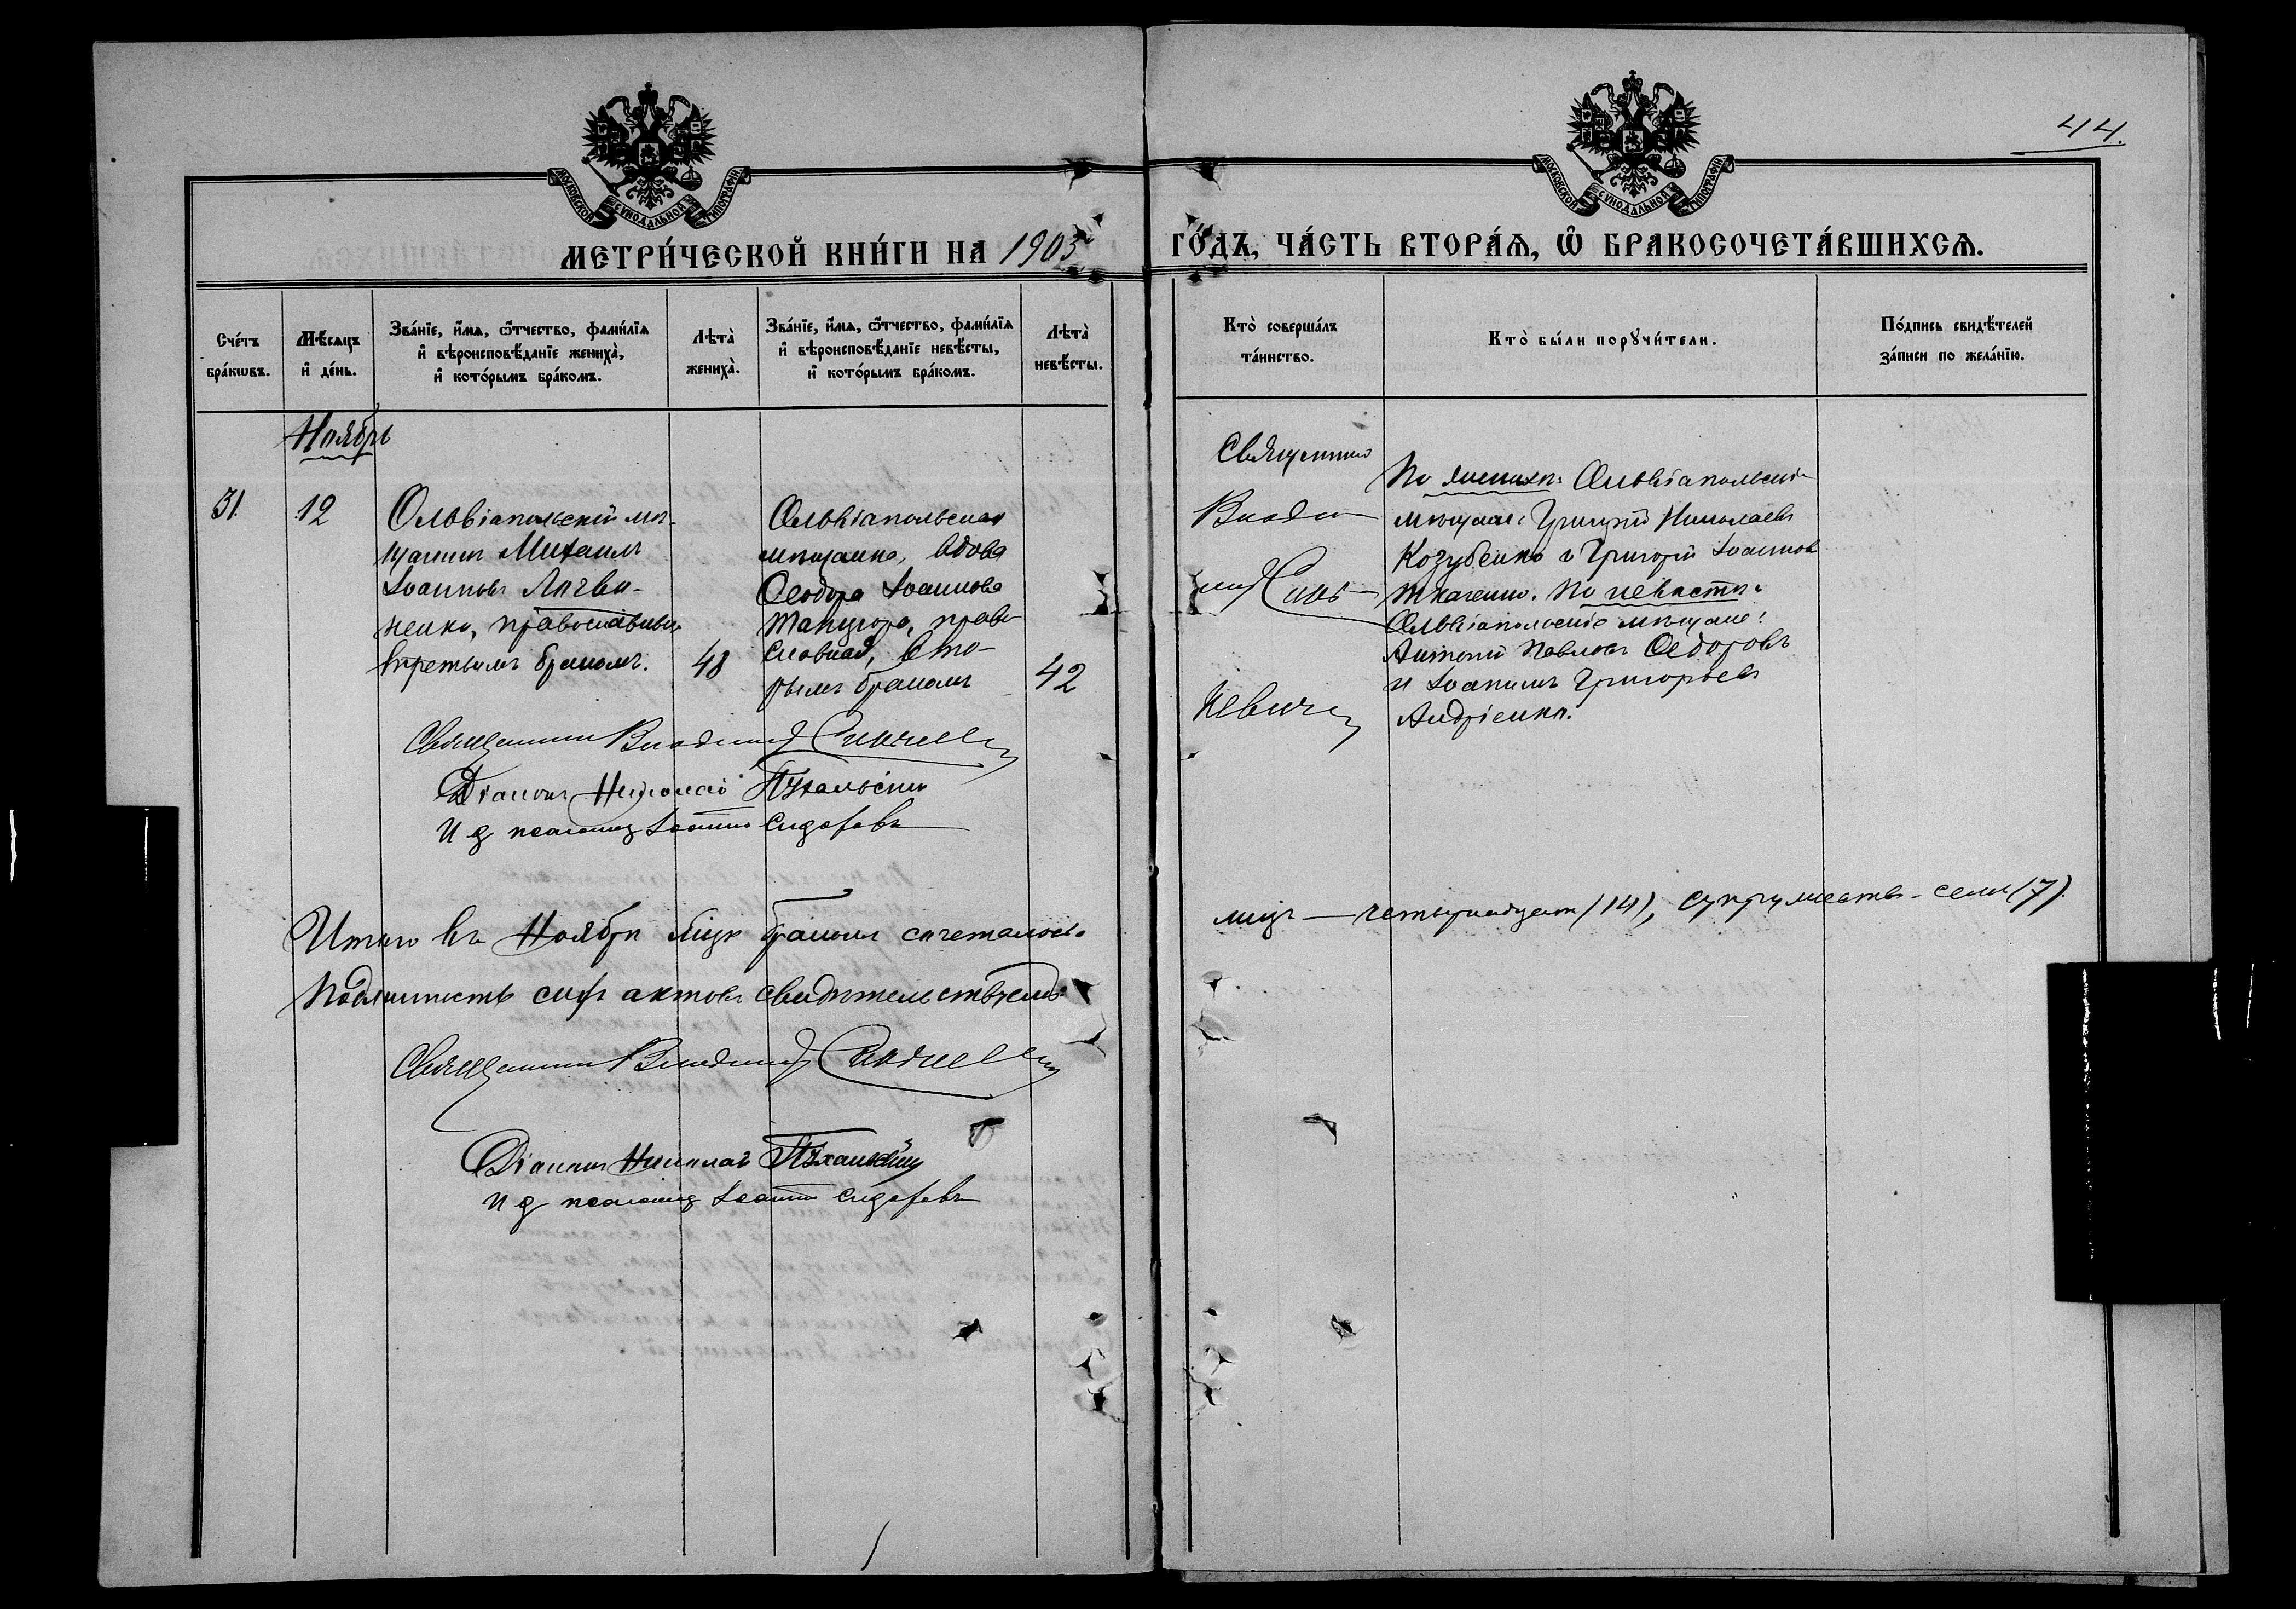 44.
МОСКОВСКОЙ СѴНОДАЛЬНОЙ ТИПОГРАФІИ
МОСКОВСКОЙ СѴНОДАЛЬНОЙ ТИПОГРАФІИ
МЕТРИ́ЧЕСКОЙ КНИ́ГИ НА 1903 ГО́ДЪ, ЧА́СТЬ ВТОРА́Ѧ, Ѽ БРАКОСОЧЕТА́ВШИХСѦ.
Сче́тъ бра́кѡвъ.
Мѣ́сѧцъ и҆ де́нь.
Зва́нїе, и҆́мѧ, ѻ҆́тчество, фами́лїѧ и҆ вѣроисповѣ́данїе жениха̀, и҆ кото́рымъ бра́комъ.
Лѣта̀ жениха̀.
Зва́нїе, и҆́мѧ, ѻ҆́тчество, фами́лїѧ и҆ вѣроисповѣ́данїе невѣ́сты, и҆ кото́рымъ бра́комъ.
Лѣта̀ невѣ́сты.
Кто̀ соверша́лъ та́инство.
Кто̀ бы́ли порꙋчи́тели.
По́дпись свидѣ́телей за́писи по жела́нїю.
Ноябрь
31.
12
Ольвіопольскій мѣ-
щанинъ Михаилъ
Іоанновъ Логви-
ненко, православный
третьимъ бракомъ.
48
Ольвіопольская
мѣщанка, вдова
Ѳеодора Іоаннова
православная, вто-
рымъ бракомъ
42
Священникъ
Влади-
миръ
Синь-
кевичъ
По женихѣ: Ольвіопольскіе
мѣщане: Григорій Николаевъ
Козубенко и Григорій Іоанновъ
Ткаченко. По невѣстѣ:
Ольвіопольскіе мѣщане:
Антоній Павловъ Ѳедоровъ
и Іоаннъ Григорьевъ
Андріенко.
Священникъ Владимиръ
Діаконъ Николай Пухальскій
И д псаломщ Іоаннъ Сидоровъ
Итого въ Ноябрѣ мцѣ бракомъ сочеталось
лицъ — четырнадцать (14), супружествъ - семь (7).
Подлинность сихъ актовъ свидѣтельствуемъ
Священникъ Владимиръ
Діаконъ Николай Пухальскій
И д псаломщ Іоаннъ Сидоровъ